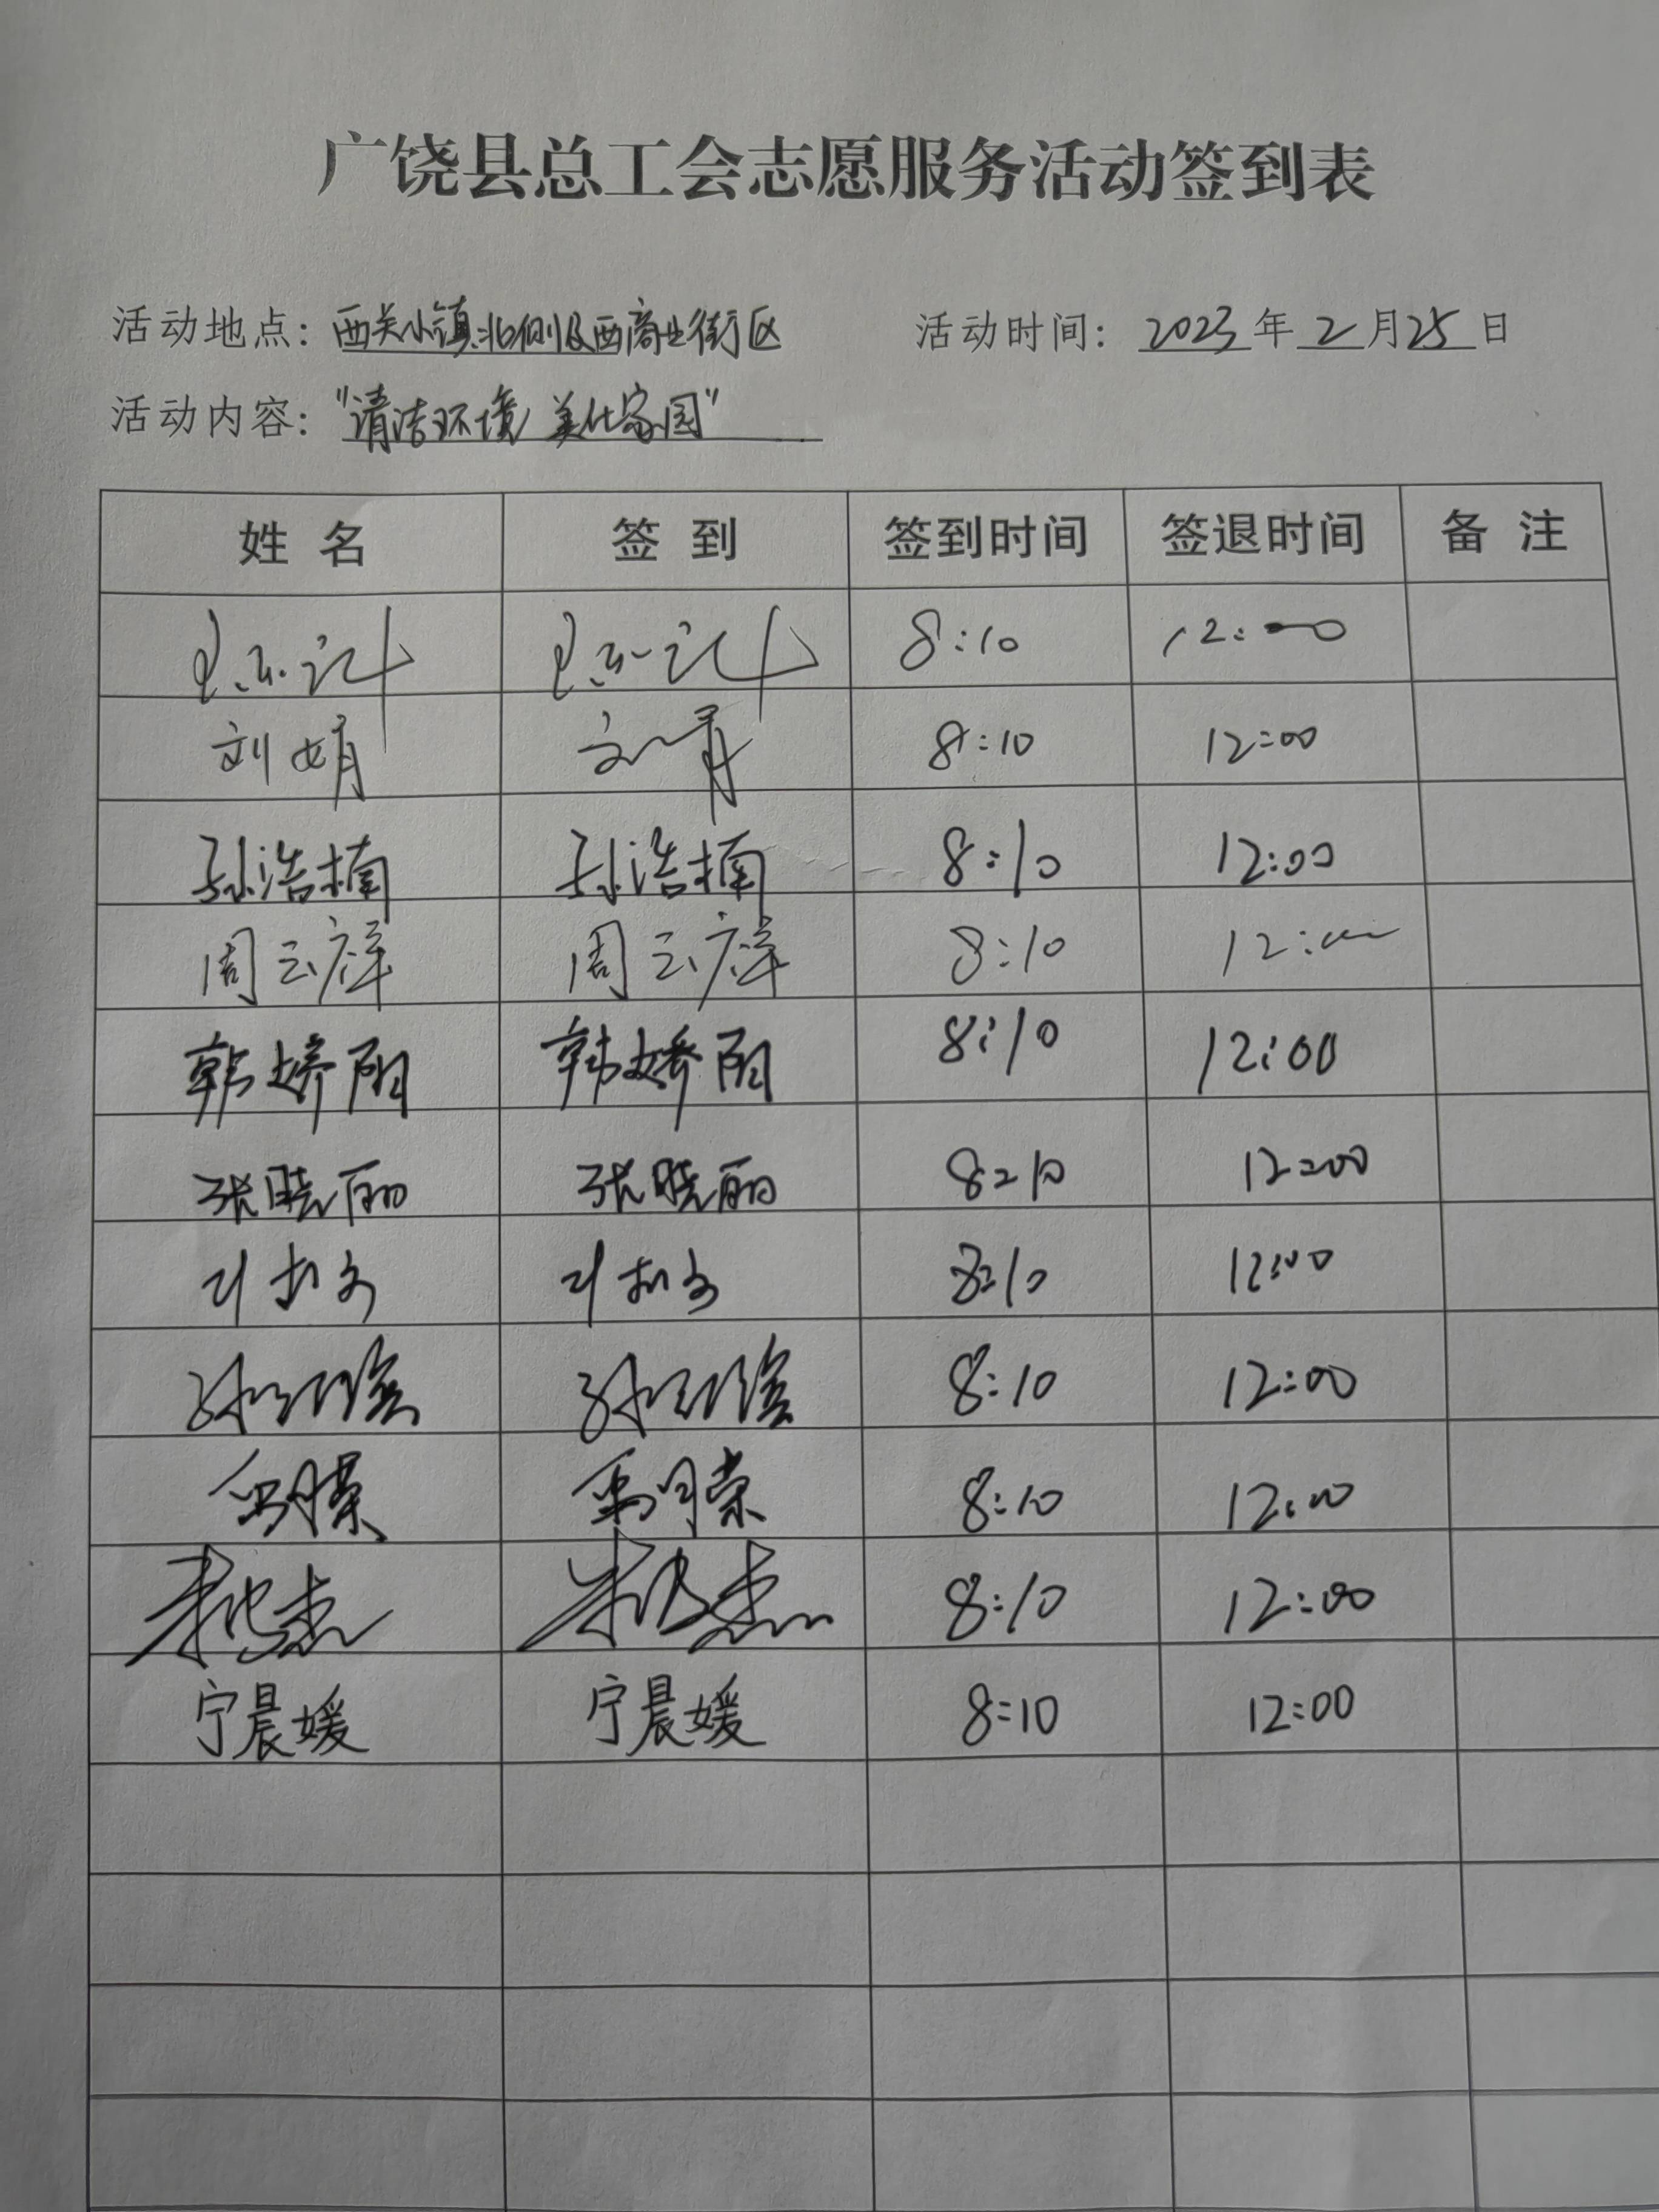 广饶县总工会志愿服务活动签到表
活动地点：西关小镇北侧及西商业街区 活动时间：2023年2月25日
活动内容："清洁环境 美化家园"
姓名 签到 签到时间 签退时间 备注
8:10 12:00
刘娟 8:10 12:00
孙浩楠 孙浩楠 8:10 12:00
周云祥 周云祥 8:10 12:00
韩娇丽 韩娇丽 8:10 12:00
张晓丽 张晓丽 8:10 12:00
8:10 12:00
8:10 12:00
8:10 12:00
8:10 12:00
宁晨媛 宁晨媛 8:10 12:00